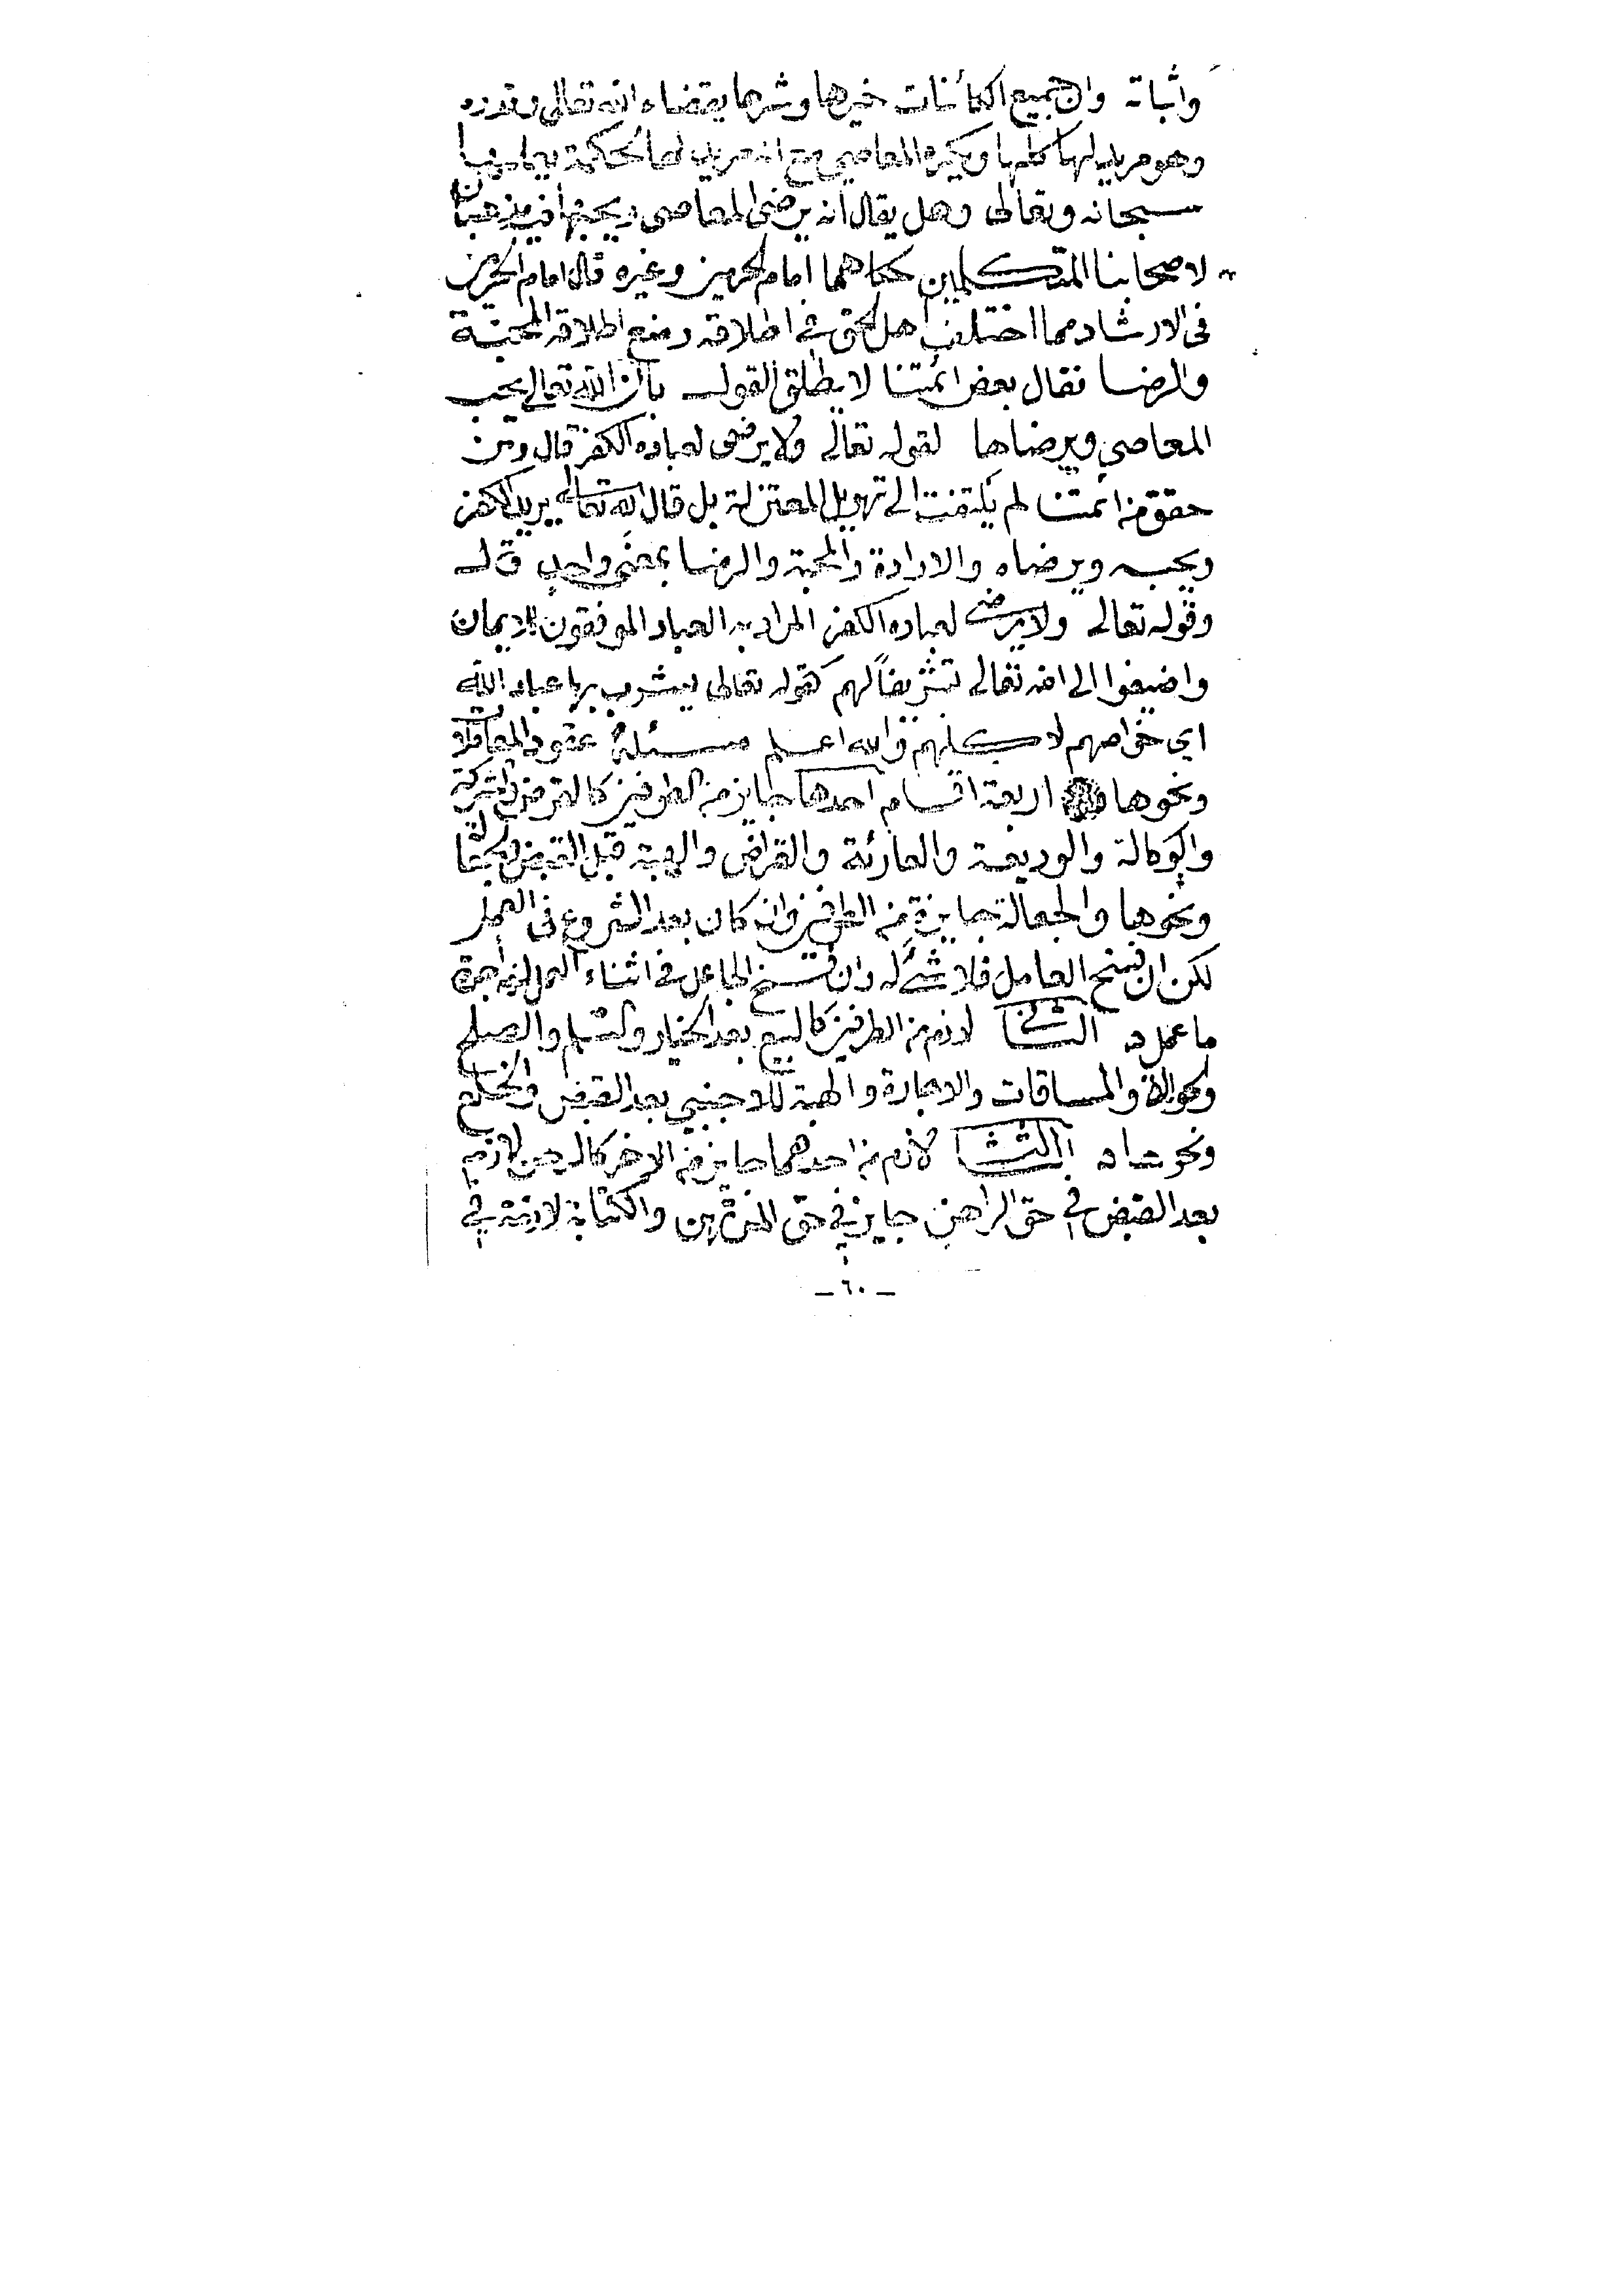 واثباته وان جميع الكائنات خيرها وشرها بقضاء الله تعالى وقدره
وهو مريد لها كلها ويكره المعاصي مع انه مريد لها لحكمة يعلمها
سبحانه وتعالى وهل يقال انه يرضى المعاصى ويحبها فيه مذهبان
لاصحابنا المتكلمين حكاهما امام الحرمين وغيره قال امام الحرمين
فى الارشاد مما اختلف اهل الحق في اطلاقه ومنع اطلاقه المحبة
والرضا فقال بعض ائمتنا لا يطلق القول بان الله تعالى يحب
المعاصي ويرضاها لقوله تعالى ولا يرضى لعباده الكفر قال ومن
حقق من ائمتنا لم يلتفت الى تهويل المعتزلة بل قال الله تعالى يريد الكفر
ويحبه ويرضاه والارادة والمحبة والرضا بمعنى واحد قال
وقوله تعالى ولا يرضى لعباده الكفر المراد به العباد الموفقون للايمان
واضيفوا الى الله تعالى تشريفا لهم كقوله تعالى يشرب بها عباد الله
اي خواصهم لا كلهم والله اعلم مسئلة عقود المعاملات
ونحوها اربعة اقسام احدها جايز من الطرفين كالقرض والشركة
والوكالة والوديعة والعارية والقراض والهبة قبل القبض
ونحوها والجعالة جايزة من الطرفين وان كان بعد الشروع فى العمل
لكن ان فسخ العامل فلا شئ له وان فسخ الجاعل في اثناء العمل لزمه اجرة
ما عمله الثاني لازم من الطرفين كالبيع بعد الخيار والسلم والصلح
والحوالة والمساقات والاجارة والهبة للاجنبي بعد القبض والخلع
ونحوها الثالث لازم من احدهما جايز من الاخر كالرهن لازم
بعد القبض في حق الراهن جايز في حق المرتهن والكتابة لازمة في
- ٦٠ -